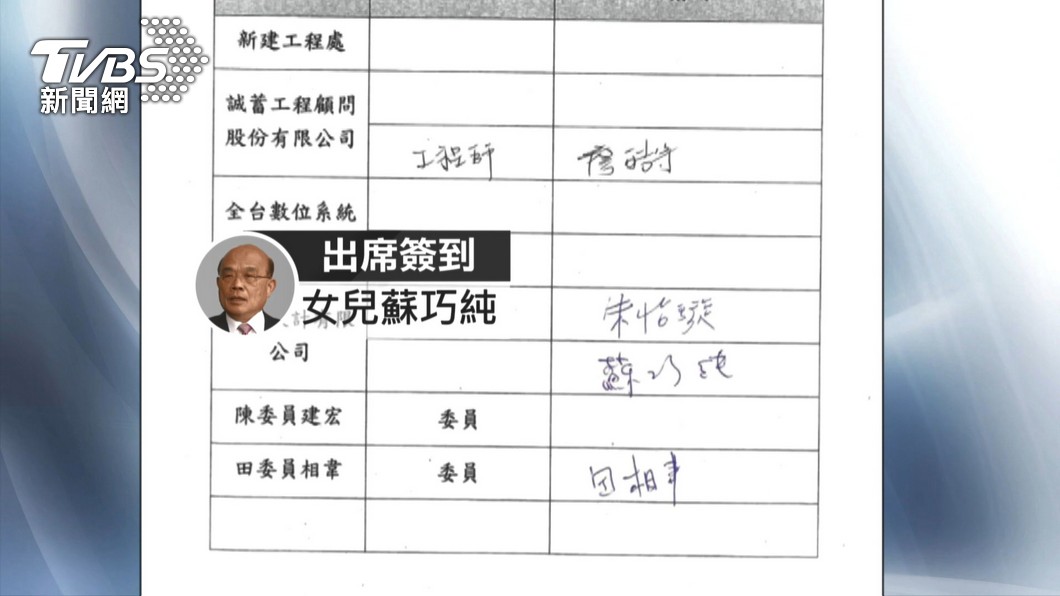 TVBS
新聞網
新建工程處
誠蓄工程顧問
股份有限公司
工程師
全台數位系統
出席簽到
女兒蘇巧純
計有限
朱怡璇
公司
蘇巧純
陳委員建宏
委員
田委員相韋
委員
田相韋